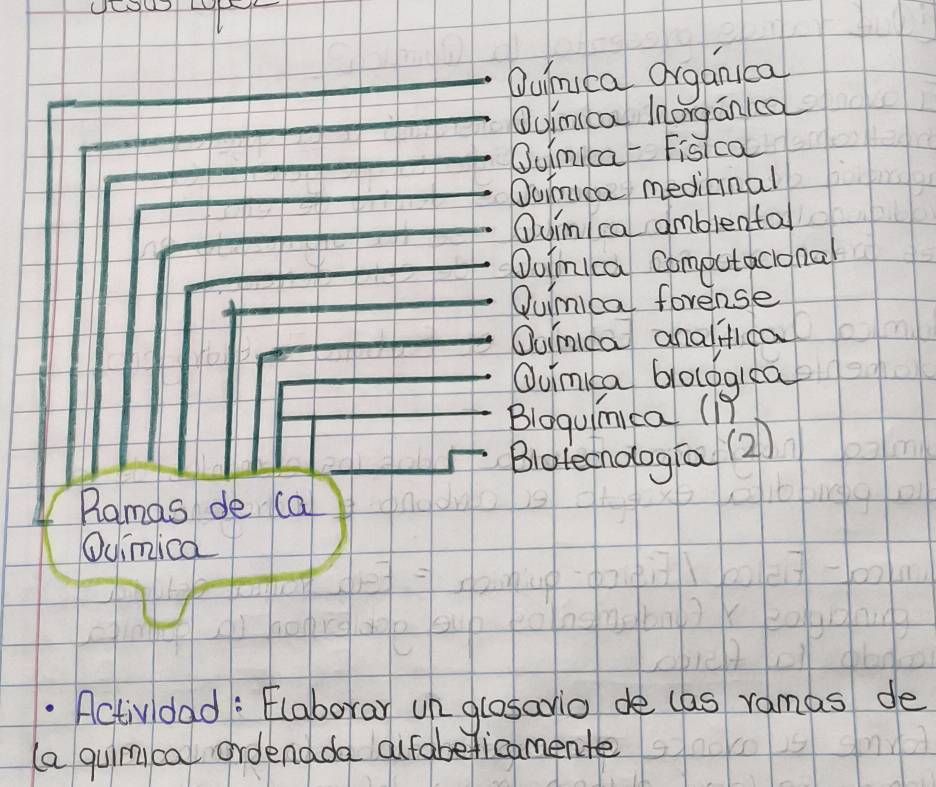 Jesús López
Química Orgánica
Química Inorgánica
Química - Física
Química medicinal
Química ambiental
Química Computacional
Química forense
Química analítica
Química biológica
Bioquímica (1)
Biotecnología (2)
Ramas de la
Química
• Actividad: Elaborar un glosario de las ramas de
la química ordenada alfabeticamente